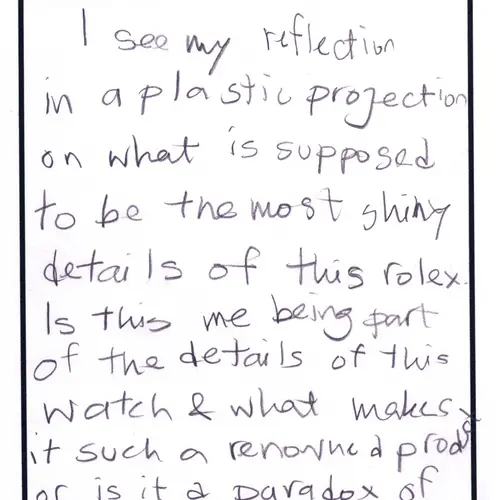 I see my reflection
in a plastic projection
on what is supposed
to be the most shiny
details of this rolex.
Is this me being part
of the details of this
watch & what makes
it such a renowned
or is it a paradox of